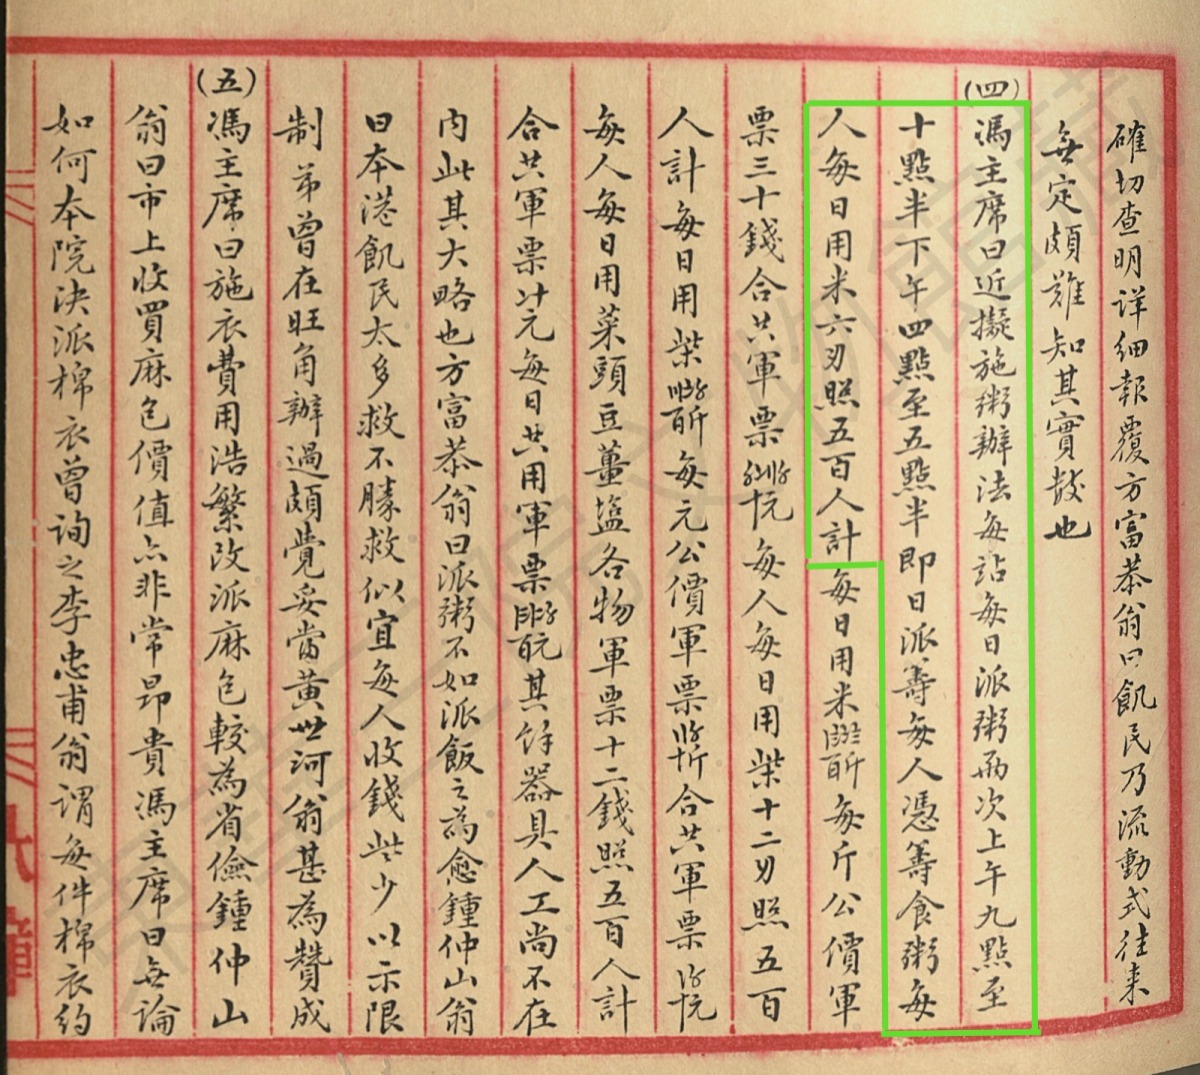 確切查明详細報覆方富恭翁曰飢民乃流動式往来
無定頗難知其實数也
(四)
馮主席曰近擬施粥辦法每站每日派粥兩次上午九點至
十點半下午四點至五點半即日派籌每人憑籌食粥每
人每日用米六刄照五百人計每日用米百斤每斤公價軍
票三十錢合共軍票每人每日用柴十二刄照五百
人計每日用柴百斤每元公價軍票合共軍票
每人每日用菜頭豆薑塩各物軍票十二錢照五百人計
合共軍票元每日共用軍票其馀器具人工尚不在
内此其大略也方富恭翁曰派粥不如派飯之為愈鍾仲山翁
曰本港飢民太多救不勝救似宜每人收錢些少以示限
制弟曾在旺角辦過頗覺妥當黄世河翁甚為贊成
(五)
馮主席曰施衣費用浩繁改派麻包較為省儉鍾仲山
翁曰市上收買麻包價值亦非常昂貴馮主席曰無論
如何本院决派棉衣曾詢之李忠甫翁謂每件棉衣約
東華三院文物館藏